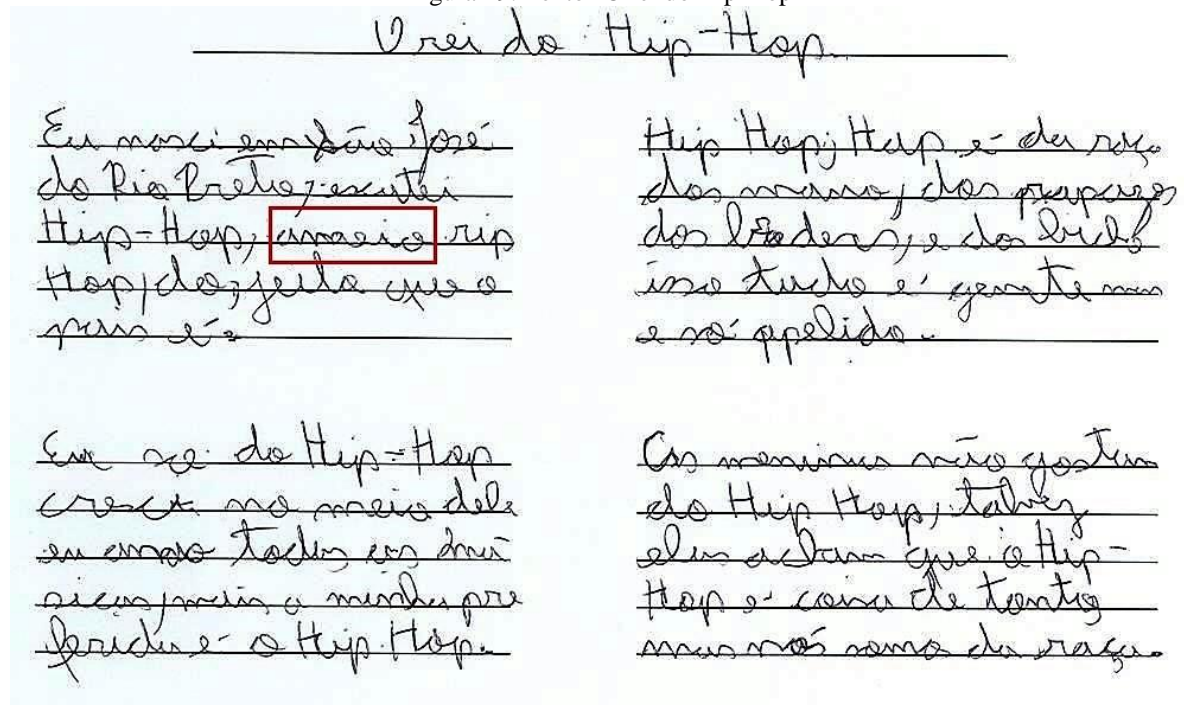 O rei do Hip-Hop.
Eu nasci em São José
do Rio Preto, escutei
Hip-Hop, amoio rip
Hop, do, jeito que o
pais é.
Eu se do Hip-Hop
cresci no meio dele
eu amo todas as mú
sicas, mais a minha pre
ferida é o Hip Hop.
Hip Hop, Hap é da raça
dos mano, dos
dos e do
isso tudo é gente mas
e só apelido.
As meninas não gostam
do Hip Hop, talvez
elas acham que o Hip-
Hop é coisa de
mas nós somo da raça.